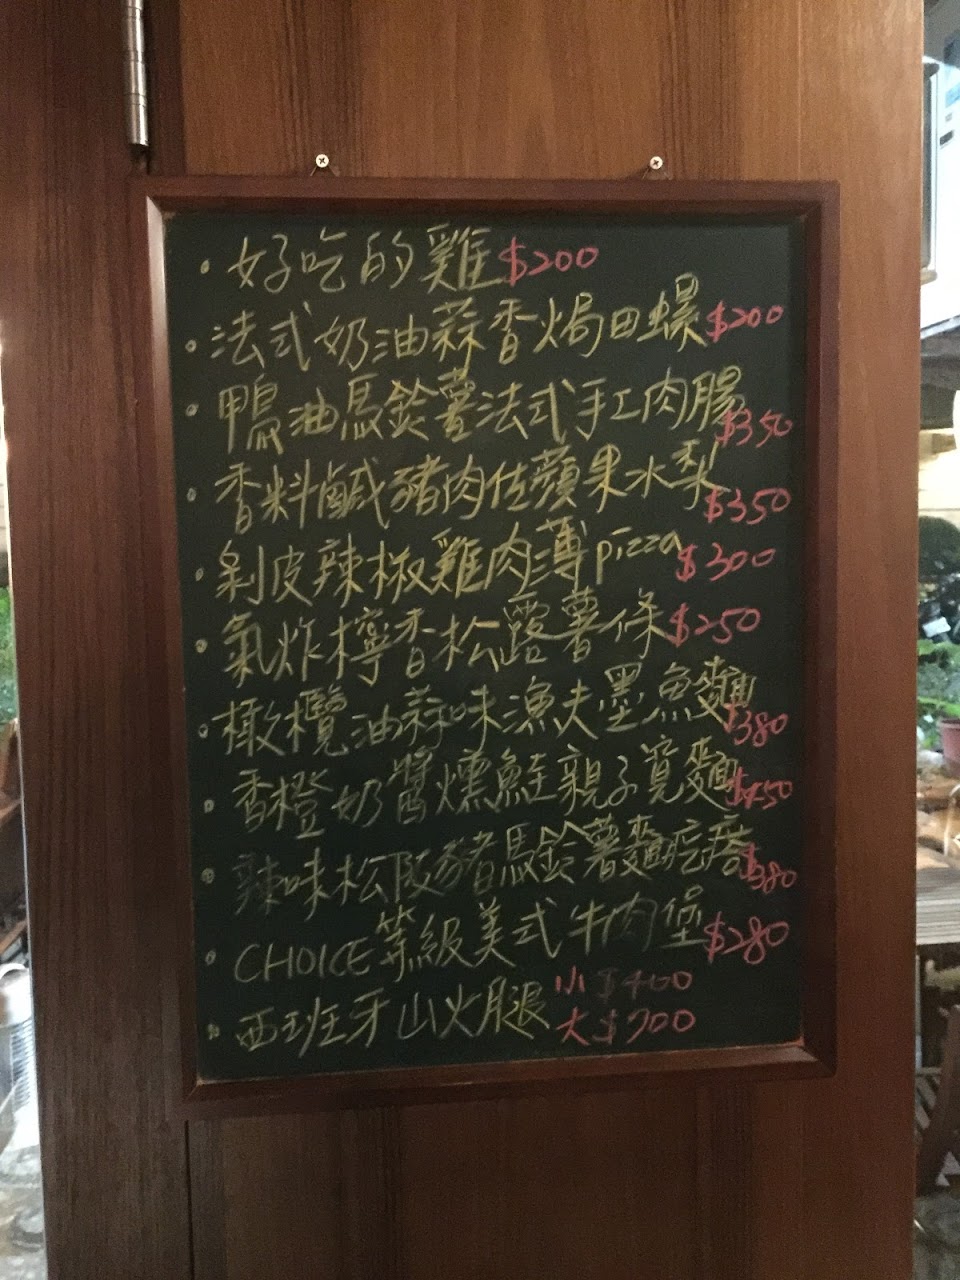 · 好吃的雞 $200
· 法式奶油蒜香焗田螺 $200
· 鴨油馬鈴薯法式手工肉腸 $350
· 香料鹹豬肉佐蘋果水梨 $350
· 剝皮辣椒雞肉薄pizza $300
· 氣炸檸香松露薯條 $250
· 橄欖油蒜味漁夫墨魚麵 $380
· 香橙奶醬燻鮭親子寬麵 $450
· 辣味松阪豬馬鈴薯麵疙瘩 $380
· CHOICE等級美式牛肉堡 $280
· 西班牙山火腿 小 $400
大 $700